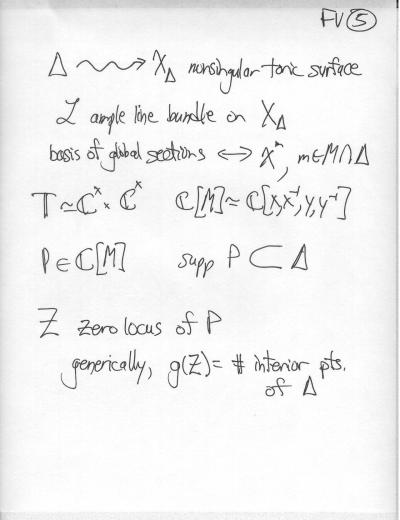 FV 5
Δ ⇝ X_Δ nonsingular toric surface
ℒ ample line bundle on X_Δ
basis of global sections ↔ χ^m, m∈M∩Δ
T ≃ ℂ^× × ℂ^× ℂ[M] ≃ ℂ[x,x^-1,y,y^-1]
P ∈ ℂ[M] supp P ⊂ Δ
Z zero locus of P
generically, g(Z) = # interior pts.
of Δ